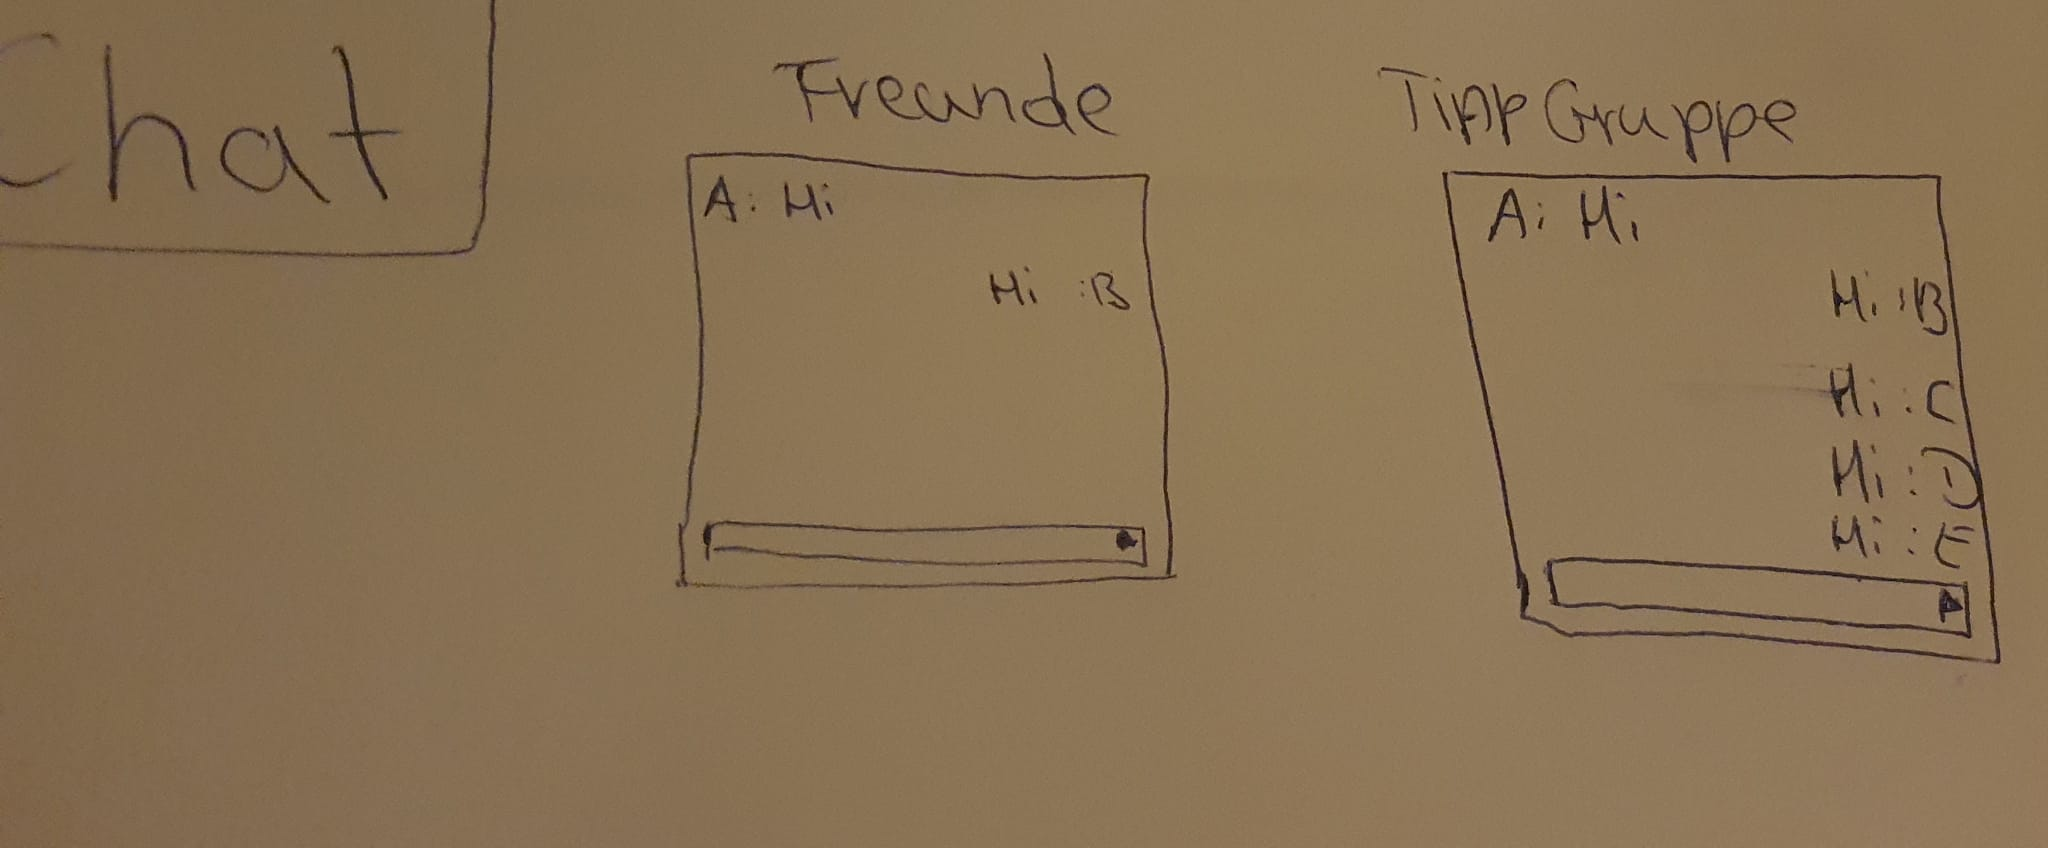 Chat
Freunde
A: Hi
Hi :B
Tipp Gruppe
A: Hi
Hi :B
Hi :C
Hi :D
Hi :E